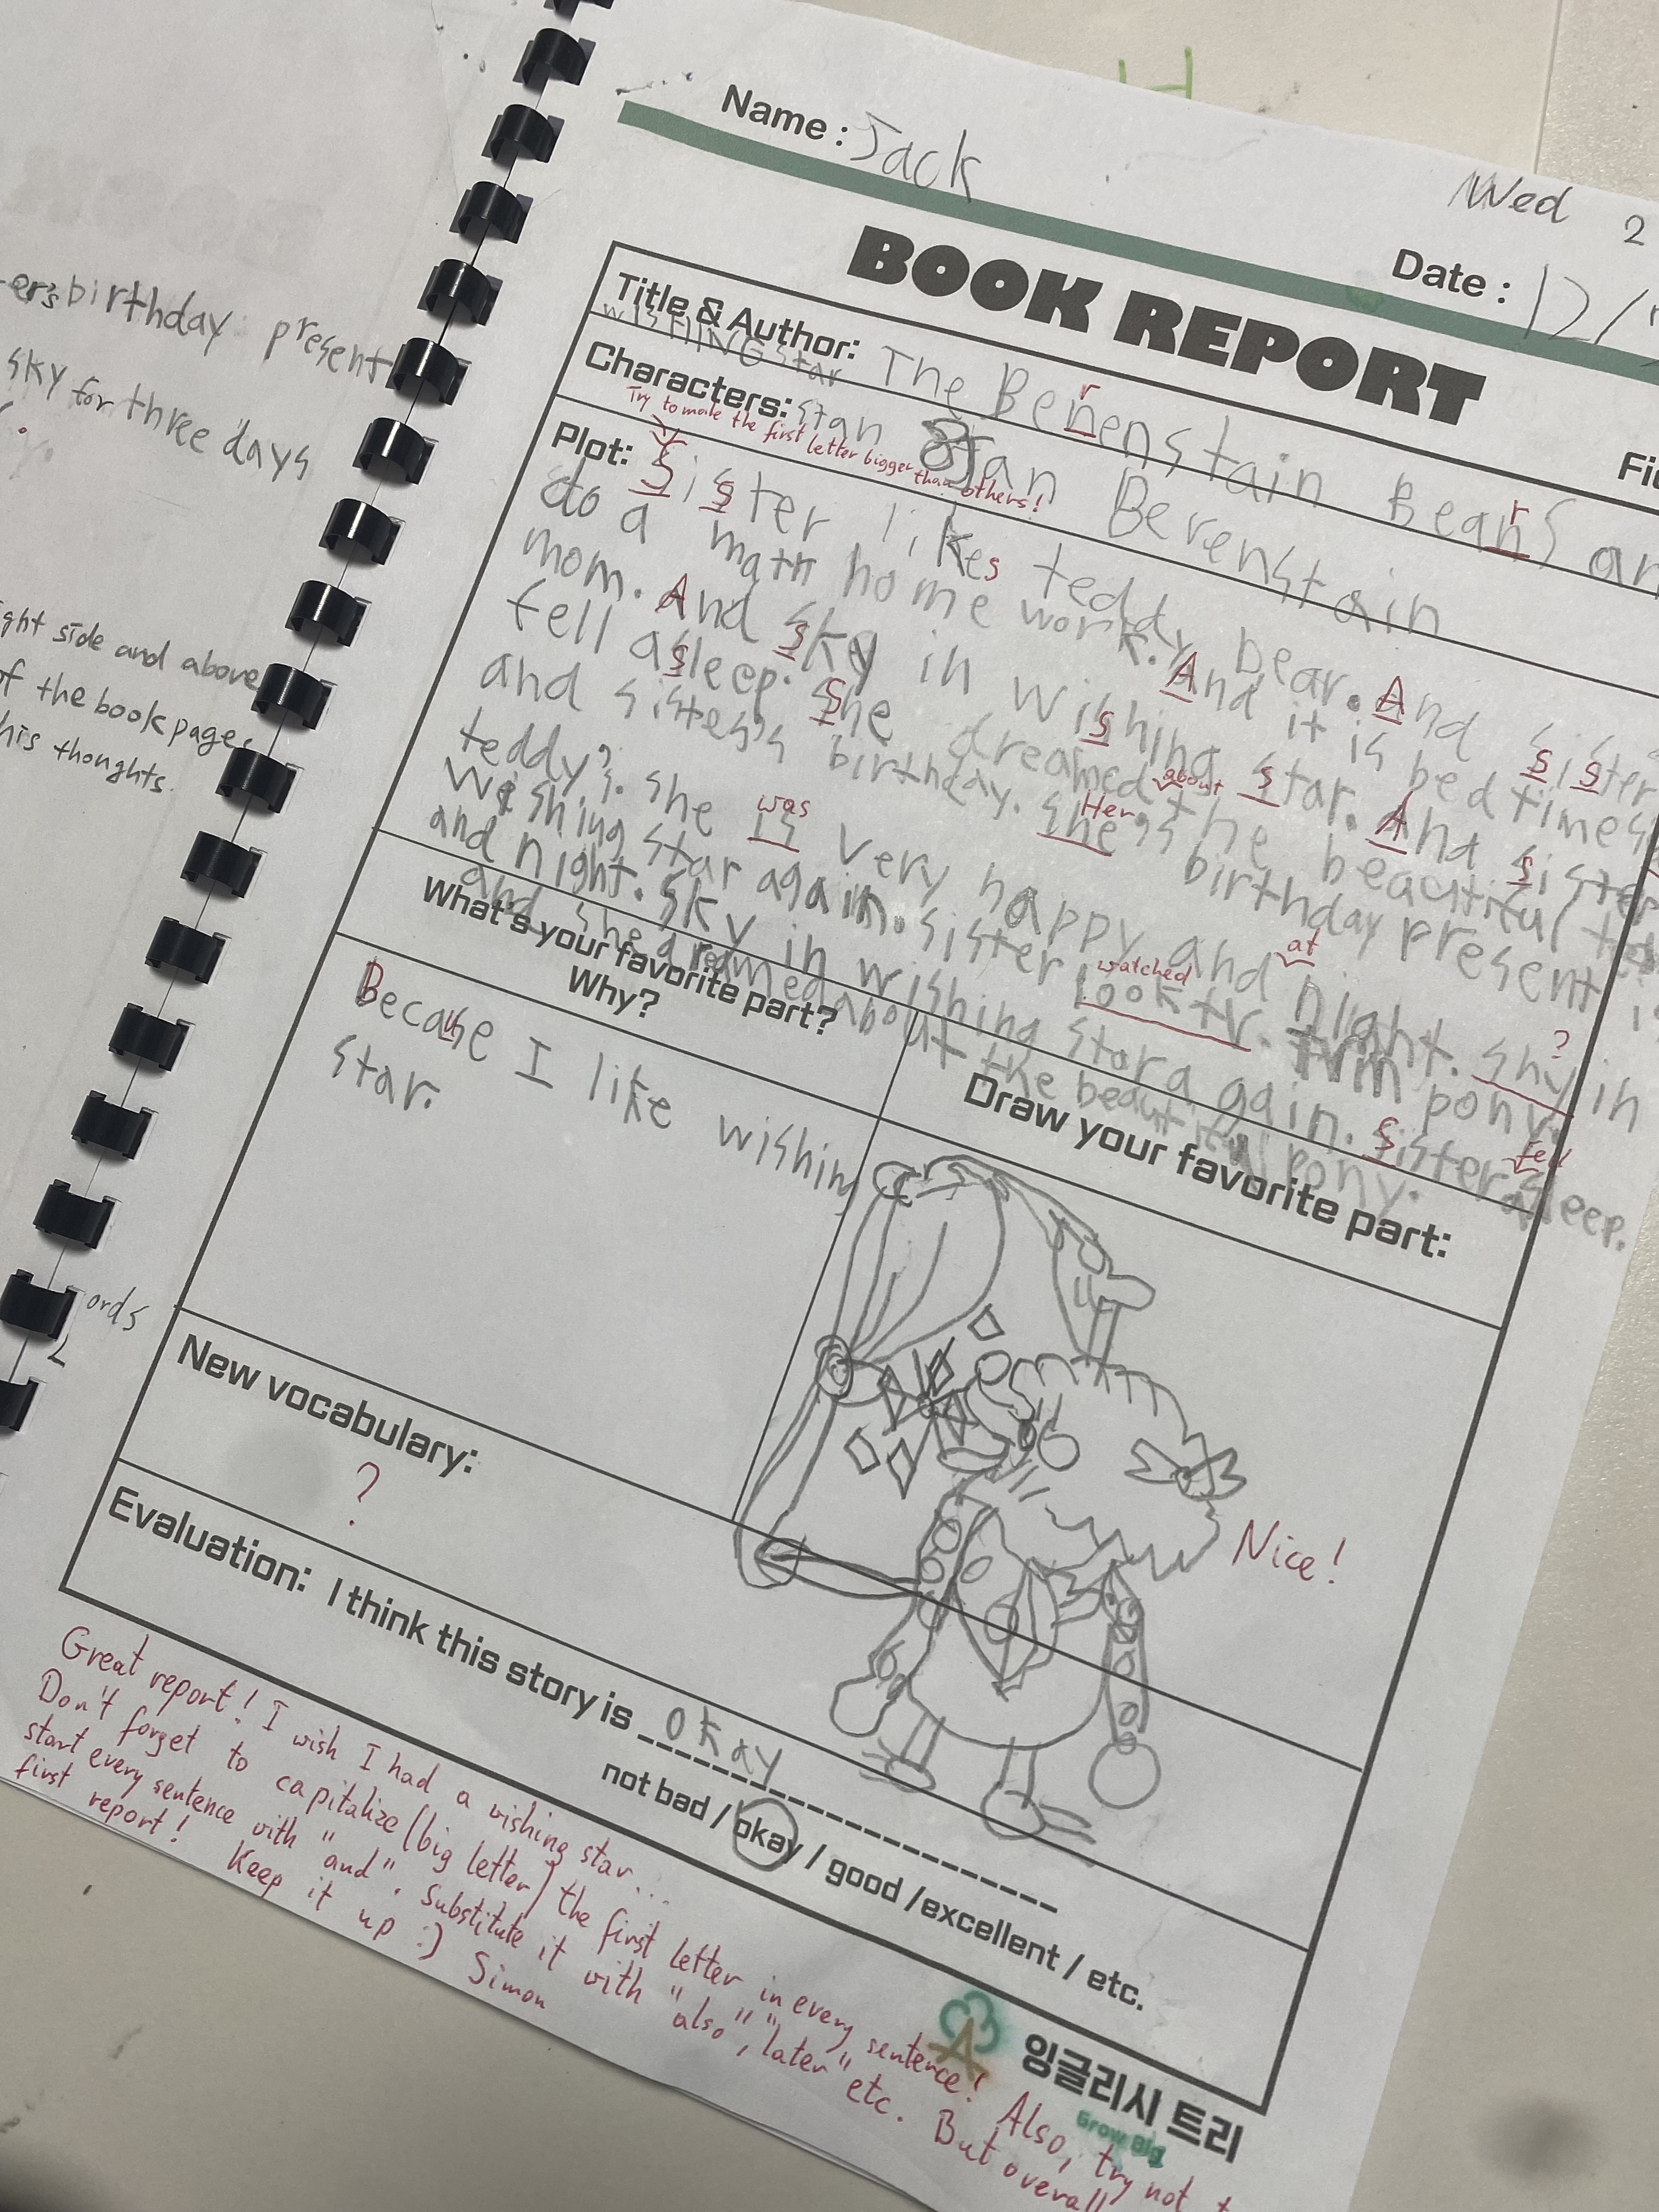 er's birthday present
sky for three days
ght side and above
of the book page.
his thoughts.
ords
Name : Jack
Wed 2
Date : 12/
BOOK REPORT
Title & Author: The Benenstain Beans an
r
r
WISHING star
Characters: Stan Jan Berenstain
Try to make the first letter bigger than others!
Plot: Sister likes teddy bear. And sister
do a math home work. And it is bed time
mom. And sky in wishing star. And sister
fell asleep. She dreamed about the beautiful
and sister's birthday. she's birthday present is
Her
teddy. She is very happy and at night. shy in
was
?
wishing star again. Sister look tv. trim pony.
watched
and night. sky in wishing star again. Sister fell asleep.
and she dreamed about the beautiful pony.
What's your favorite part?
Why?
Because I like wishing
star.
Draw your favorite part:
Nice!
New vocabulary:
?
Evaluation: I think this story is okay
not bad / okay / good /excellent / etc.
Great report! I wish I had a wishing star...
Don't forget to capitalize (big letter) the first letter in every sentence! Also, try not
start every sentence with "and". Substitute it with "also", "later" etc. But overall
first report! Keep it up :) Simon
잉글리시 트리
Grow Big